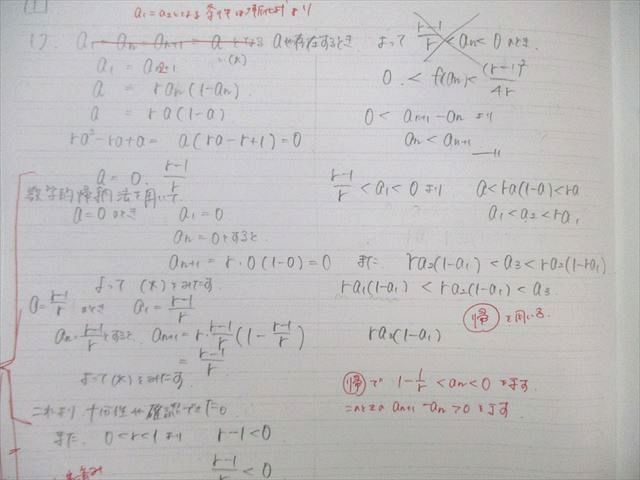 1).
a₁ = aₙ = aₙ₊₁ = a となる aが存在するとき
a₁ = a₂
(*)
a = raₙ(1-aₙ)
a = ra(1-a)
ra²-ra+a = a(ra-r+1)=0
a = 0, \frac{r-1}{r}
数学的帰納法を用いて、
a=0 のとき a₁=0
aₙ=0とすると
aₙ₊₁ = r・0(1-0) = 0
よって (*)をみたす
a=\frac{r-1}{r} のとき a₁=\frac{r-1}{r}
aₙ=\frac{r-1}{r}とすると aₙ₊₁ = r・\frac{r-1}{r}(1-\frac{r-1}{r})
= \frac{r-1}{r}
よって(*)をみたす
これより 十分性が確認できた。
また、 0<r<1 より r-1<0
\frac{r-1}{r}<0
よって \frac{r-1}{r}<aₙ<0 のとき.
0 < f(aₙ) < \frac{(r-1)²}{4r}
0 < aₙ₊₁-aₙ より
aₙ < aₙ₊₁
\frac{r-1}{r} < a₁ < 0 より a<ra(1-a)<ra
a₁<a₂<ra₁
また ra₂(1-a₁) < a₃ < ra₂(1-ra₁)
ra₁(1-a₁) < ra₂(1-a₁) < a₃.
帰 を用いる.
ra₂(1-a₁)
帰 で 1-\frac{1}{r} < aₙ < 0 を示す
aₙ₊₁-aₙ>0 を示す